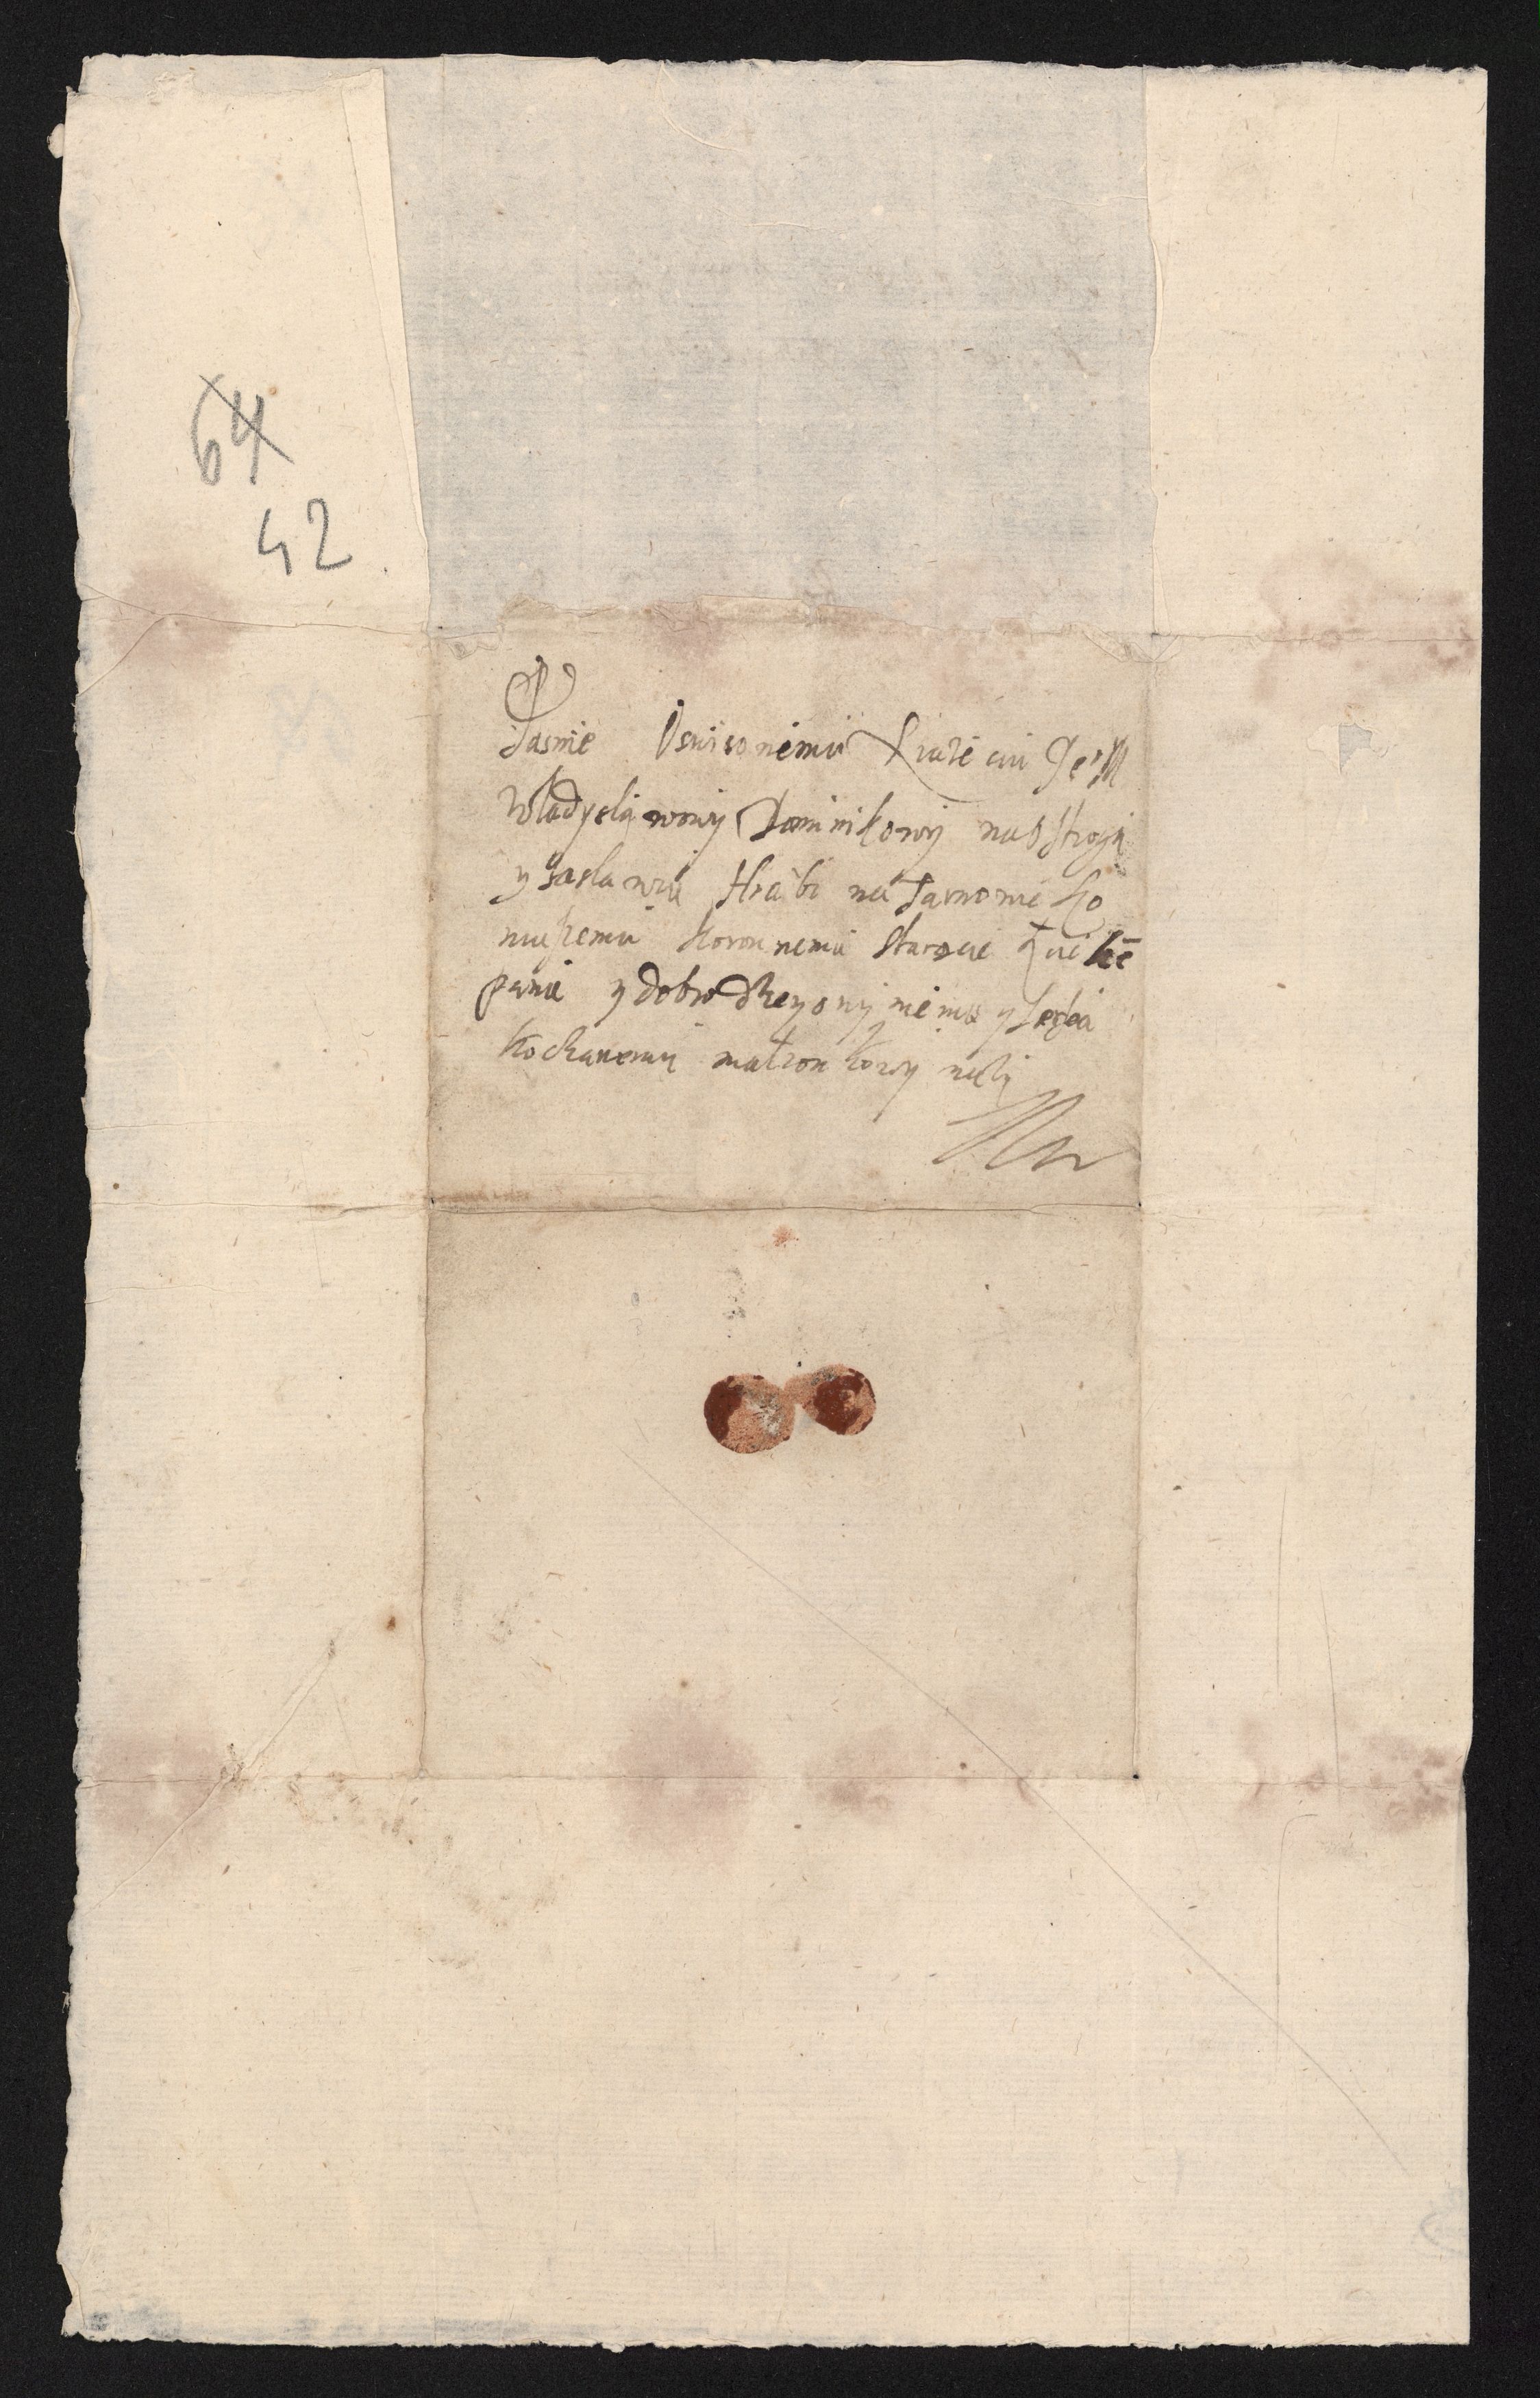 64
42
Jasnie Oswieconemu Xiazeciu Jeo M
Wladyslawowy Dominikowy na Ostrogu
y Zaslawiu Hrabi na Tarnowie Ko
niuszemu Koronnemu Staroscie
panu y dobrodzieyowy memu y serca
kochanemu małzonkowy